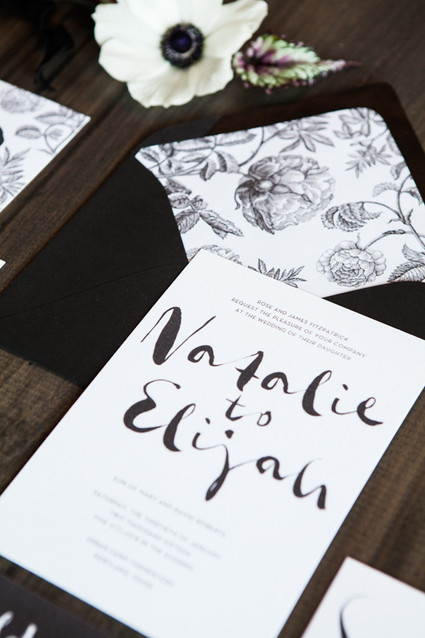 ROSE AND JAMES FITZPATRICK
REQUEST THE PLEASURE OF YOUR COMPANY
AT THE WEDDING OF THEIR DAUGHTER
Natalie
to
Elijah
SON OF MARY AND DAVID ROBERTS
SATURDAY, THE THIRTIETH OF JANUARY
TWO THOUSAND SIXTEEN
FIVE O'CLOCK IN THE EVENING